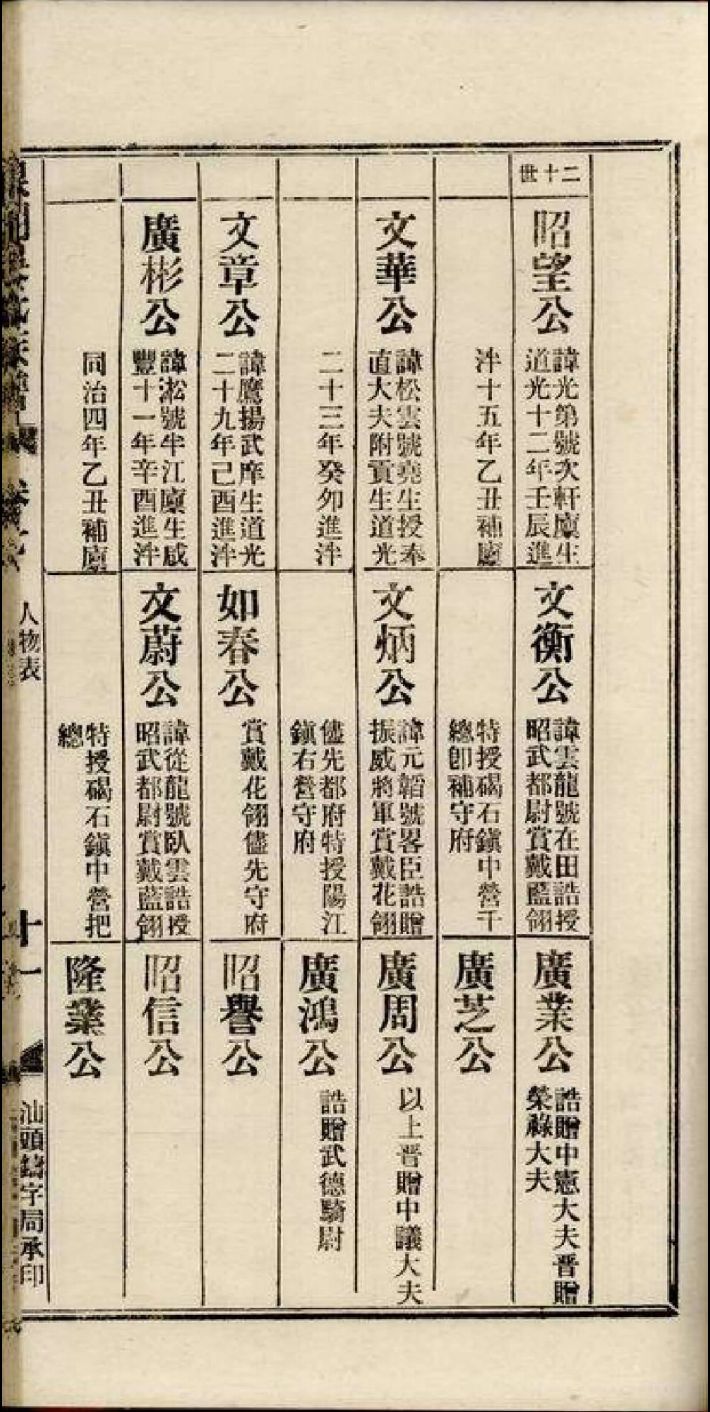 二十世
昭望公
諱光第號次軒廩生
道光十二年壬辰進
泮十五年乙丑補廩
文華公
諱松雲號堯生授奉
直大夫附貢生道光
二十三年癸夘進泮
文章公
諱鷹揚武庠生道光
二十九年己酉進泮
廣彬公
諱淞號半江廩生咸
豐十一年辛酉進泮
同治四年乙丑補廩
文衡公
諱雲龍號在田誥授
昭武都尉賞戴藍翎
特授碣石鎮中營千
總卽補守府
文炳公
諱元韜號畧臣誥贈
振威將軍賞戴花翎
儘先都府特授陽江
鎮右營守府
如春公
賞戴花翎儘先守府
文蔚公
諱從龍號臥雲誥授
昭武都尉賞戴藍翎
特授碣石鎮中營把
總
廣業公
誥贈中憲大夫晋贈
榮祿大夫
廣芝公
廣周公
以上晋贈中議大夫
廣鴻公
誥贈武德騎尉
昭譽公
昭信公
隆業公
氏族譜
人物表
十一
汕頭鑄字局承印